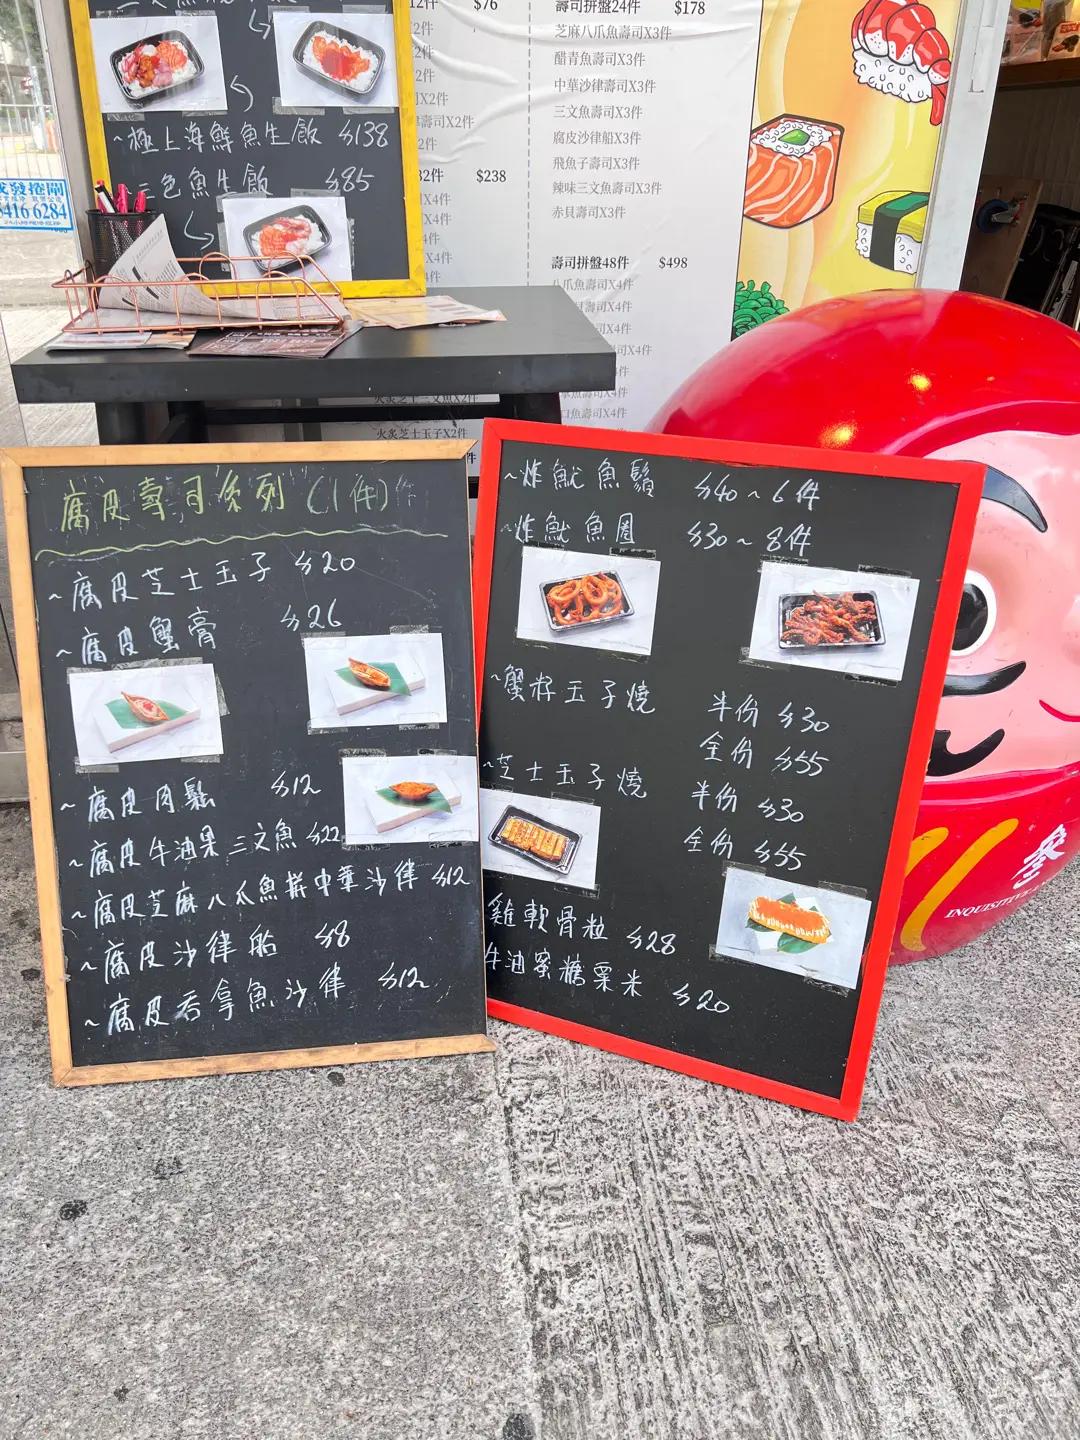 ~極上海鮮魚生飯 $138
二色魚生飯 $85
416 6284
12件 $76
X2件
壽司X2件
32件 $238
X4件
X4件
X4件
X4件
X4件
火炙芝士玉子X2件
壽司拼盤24件 $178
芝麻八爪魚壽司X3件
醋青魚壽司X3件
中華沙律壽司X3件
三文魚壽司X3件
腐皮沙律船X3件
飛魚子壽司X3件
辣味三文魚壽司X3件
赤貝壽司X3件
壽司拼盤48件 $498
八爪魚壽司X4件
壽司X4件
壽司X4件
壽司X4件
魚壽司X4件
腐皮壽司系列(1件)
~腐皮芝士玉子 $20
~腐皮蟹膏 $26
~腐皮肉鬆 $12
~腐皮牛油果三文魚 $22
~腐皮芝麻八爪魚拼中華沙律 $12
~腐皮沙律船 $8
~腐皮吞拿魚沙律 $12
~炸魷魚鬚 $40~6件
~炸魷魚圈 $30~8件
~蟹籽玉子燒 半份 $30
全份 $55
~芝士玉子燒 半份 $30
全份 $55
雞軟骨粒 $28
牛油蜜糖粟米 $20
INQUISITIVE